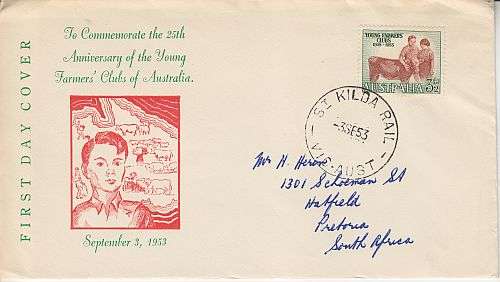 FIRST DAY COVER
To Commemorate the 25th
Anniversary of the Young
Farmers' Clubs of Australia.
September 3, 1953
YOUNG FARMERS'
CLUBS
1928-1953
AUSTRALIA
3½D
ST KILDA RAIL
-3SE53
VIC-AUST
Mr H.
1301 Schoeman St
Hatfield
Pretoria
South Africa